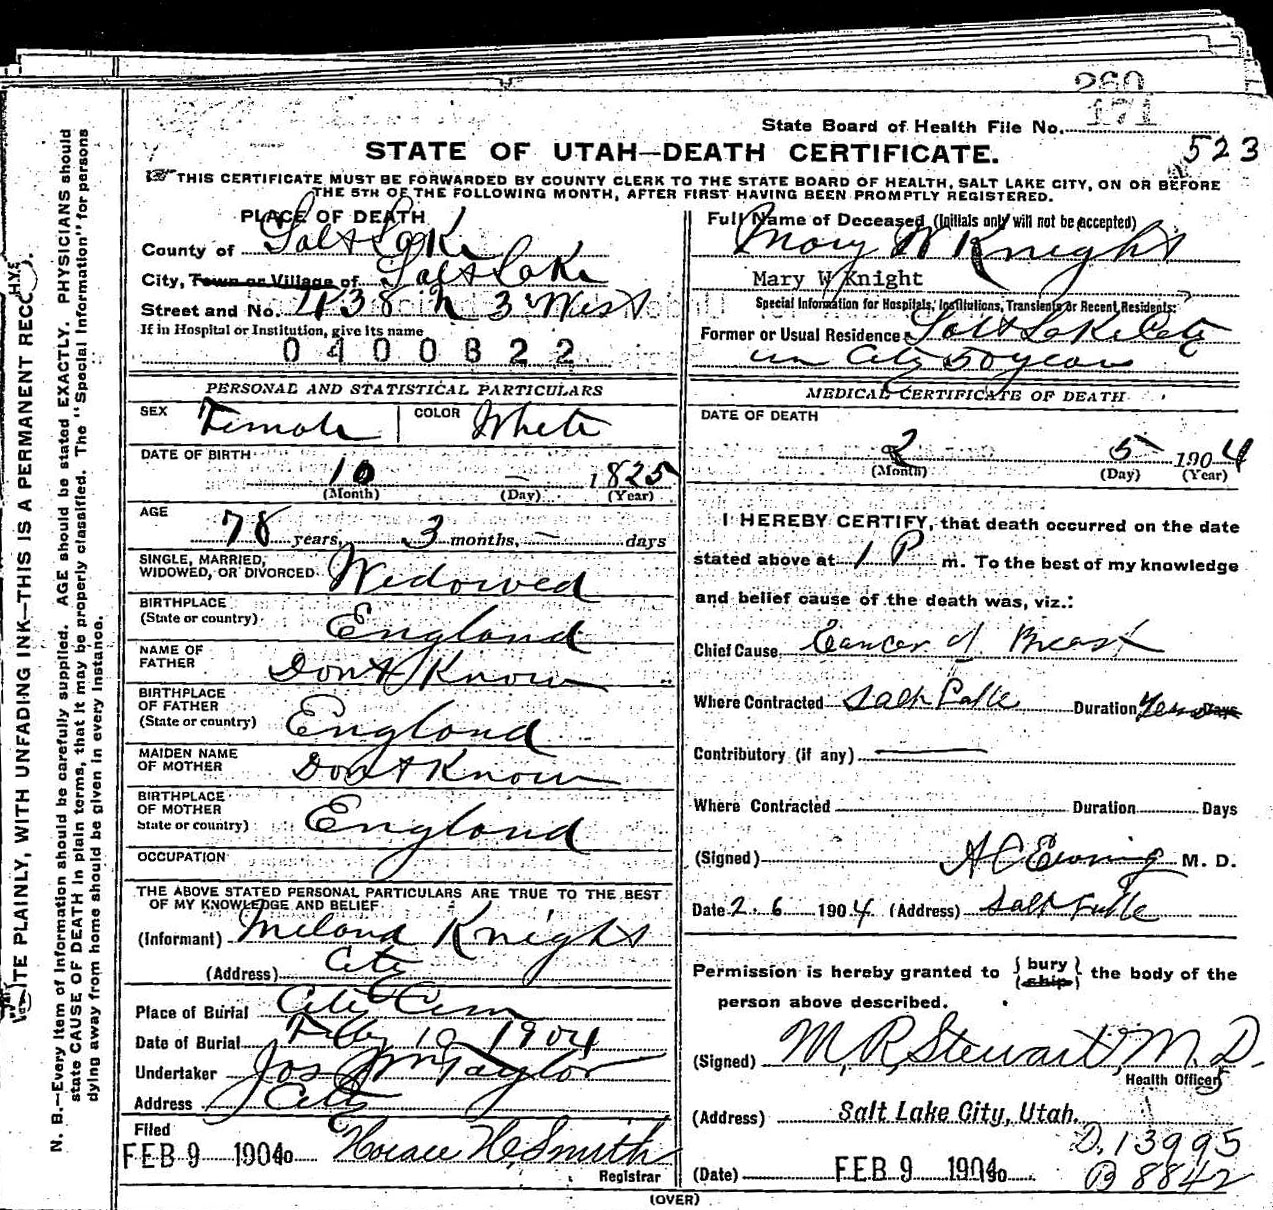 260
171
State Board of Health File No.
523
STATE OF UTAH—DEATH CERTIFICATE.
THIS CERTIFICATE MUST BE FORWARDED BY COUNTY CLERK TO THE STATE BOARD OF HEALTH, SALT LAKE CITY, ON OR BEFORE
THE 5TH OF THE FOLLOWING MONTH, AFTER FIRST HAVING BEEN PROMPTLY REGISTERED.
WRITE PLAINLY, WITH UNFADING INK—THIS IS A PERMANENT RECORD.
N. B.—Every item of information should be carefully supplied. AGE should be stated EXACTLY. PHYSICIANS should
state CAUSE OF DEATH in plain terms, that it may be properly classified. The "Special Information" for persons
dying away from home should be given in every instance.
PLACE OF DEATH
County of Salt Lake
City, Town or Village of Salt Lake
Street and No. 438 N 3 West
If in Hospital or Institution, give its name
0400822
PERSONAL AND STATISTICAL PARTICULARS
SEX Female COLOR White
DATE OF BIRTH
10 — 1825
(Month) (Day) (Year)
AGE
78 years, 3 months, — days
SINGLE, MARRIED,
WIDOWED, OR DIVORCED Widowed
BIRTHPLACE
(State or country) England
NAME OF
FATHER Dont Know
BIRTHPLACE
OF FATHER
(State or country) England
MAIDEN NAME
OF MOTHER Dont Know
BIRTHPLACE
OF MOTHER
State or country) England
OCCUPATION
THE ABOVE STATED PERSONAL PARTICULARS ARE TRUE TO THE BEST
OF MY KNOWLEDGE AND BELIEF
(Informant) Knight
(Address) City
Place of Burial City Cem
Date of Burial Feby 10 1904
Undertaker Jos Wm Taylor
Address City
Filed
FEB 9 1904 Horace H. Smith
Registrar
(OVER)
Full Name of Deceased (Initials only will not be accepted)
Mary W Knight
Mary W Knight
Special Information for Hospitals, Institutions, Transients or Recent Residents:
Former or Usual Residence Salt Lake City
in City 50 years
MEDICAL CERTIFICATE OF DEATH
DATE OF DEATH
2 5 1904
(Month) (Day) (Year)
I HEREBY CERTIFY, that death occurred on the date
stated above at 1 P m. To the best of my knowledge
and belief cause of the death was, viz.:
Chief Cause Cancer of Breast
Where Contracted Salt Lake Duration Days
Contributory (if any)
Where Contracted Duration Days
(Signed) A C Ewing M. D.
Date 2. 6 1904 (Address) Salt Lake
Permission is hereby granted to {bury ship} the body of the
person above described.
(Signed) M, R, Stewart, M. D.
Health Officer
(Address) Salt Lake City, Utah.
D. 13995
(Date) FEB 9 1904
B 8842